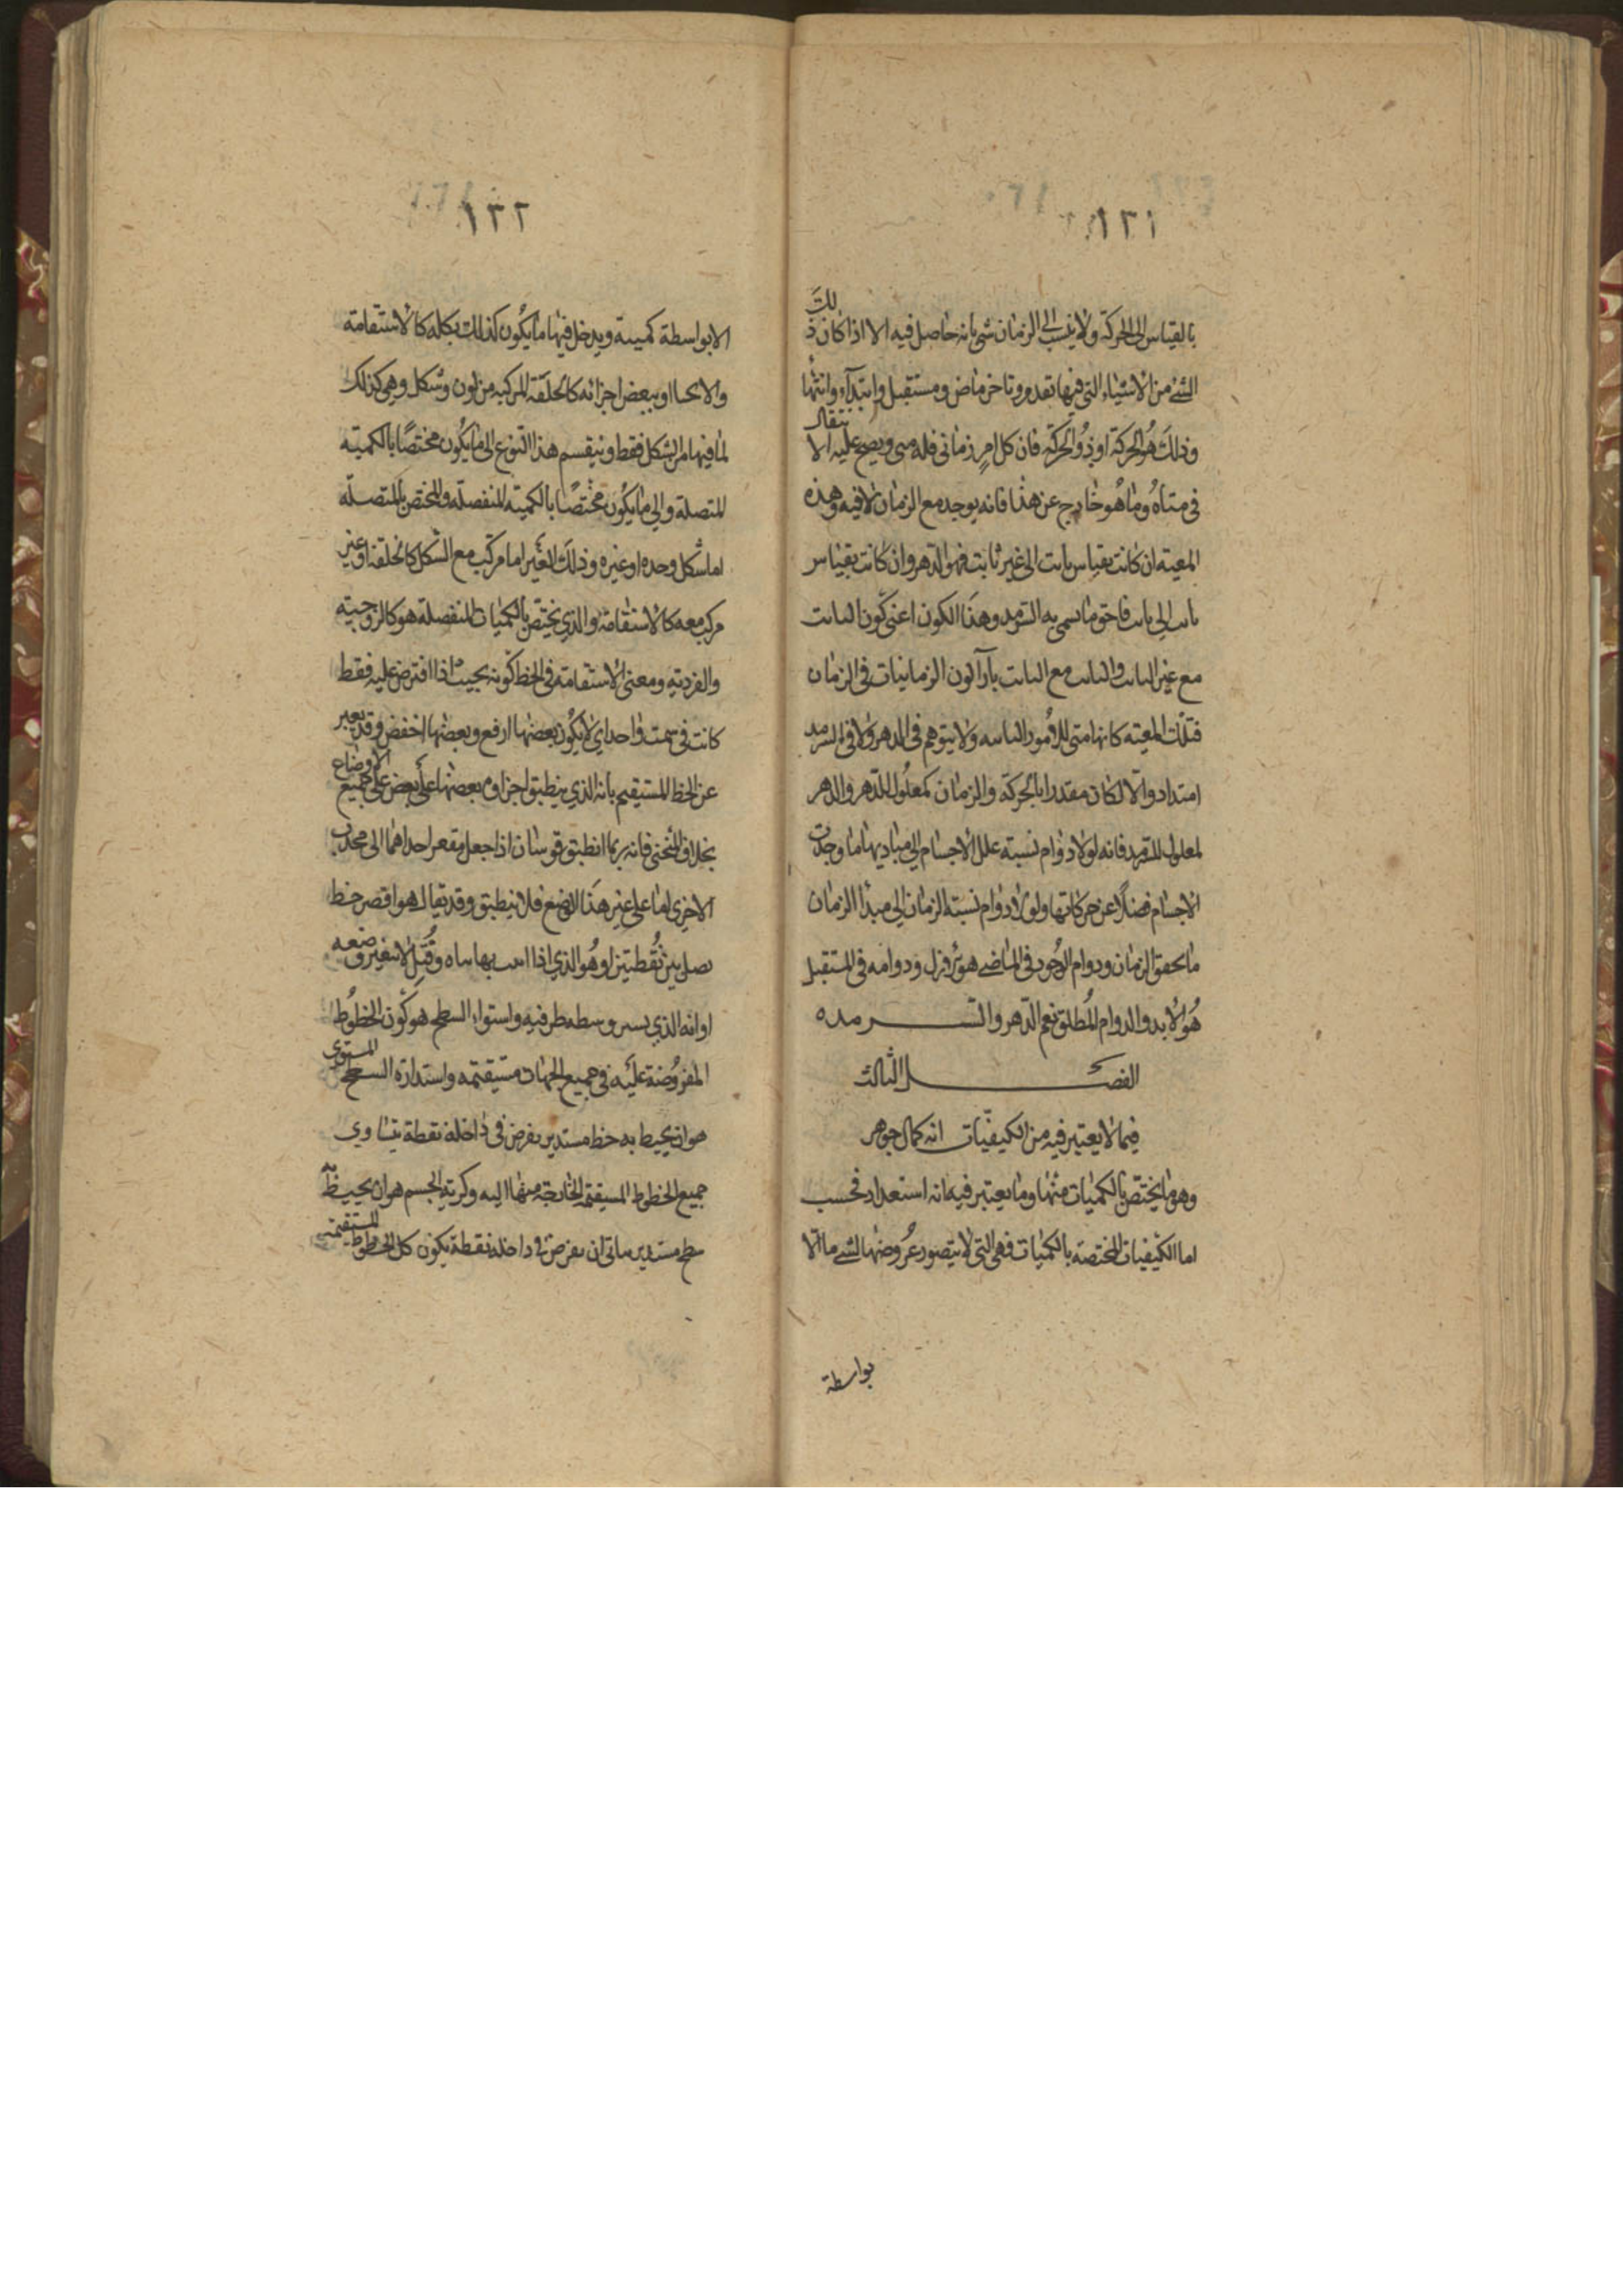 ١٢١
بالقياس الى الحركة ولا ينسب الى الزمان شى بانه حاصل فيه الا اذا كان ذلك
الشئ من الاشياء التى فيها تقدم وتاخر وماض ومستقبل وابتداء وانتهاء
وذلك هو الحركة او ذو الحركة فان كل امر زمانى فله متى ويصح عليه الانتقال
فى متاه وما هو خارج عن هذا فانه يوجد مع الزمان لا فيه وهذه
المعية ان كانت بقياس ثابت الى غير ثابت فهو الدهر وان كانت بقياس
ثابت الى ثابت فاحق ما يسمى به السرمد وهذا الكون اعنى كون الثابت
مع غير الثابت والثابت مع الثابت بازاء كون الزمانيات فى الزمان
فتلك المعية كانها متى للامور الثابتة ولا يتوهم فى الدهر ولا فى السرمد
امتداد والا لكان مقدرا بالحركة والزمان كمعلول للدهر والدهر
كمعلول للسرمد فانه لولا دوام نسبة علل الاجسام الى مباديها ما وجدت
الاجسام فضلا عن حركاتها ولولا دوام نسبة الزمان الى مبدا الزمان
ما تحقق الزمان ودوام الوجود فى الماضى هو الازل ودوامه فى المستقبل
هو الابد والدوام المطلق نعم الدهر والسرمده
الفصل الثالث
فيما لا يعتبر فيه من الكيفيات انه كمال جوهر
وهو ما يختص بالكميات منها وما يعتبر فيه انه استعداد فحسب
اما الكيفيات المختصة بالكميات فهى التى لا يتصور عروضها لشئ ما الا
بواسطة
١٢٢
الا بواسطة كمية ويدخل فيها ما يكون كذلك بكله كالاستقامة
والانحنا او ببعض اجزائه كالخلقة المركبة من لون وشكل وهى كذلك
لما فيها من الشكل فقط وينقسم هذا النوع الى ما يكون مختصا بالكمية
المتصلة والى ما يكون مختصا بالكمية المنفصلة والمختص بالمتصلة
اما شكل وحده او غيره وذلك الغير اما مركب مع الشكل كالخلقة او غير
مركب معه كالاستقامة والذى يختص بالكميات المنفصلة هو كالزوجية
والفردية ومعنى الاستقامة فى الخط كونه بحيث اذا افترض عليه نقط
كانت فى سمت واحد اى لا يكون بعضها ارفع وبعضها اخفض وقد يعبر
عن الخط المستقيم بانه الذى ينطبق اجزاوه بعضها على بعض على جميع الاوضاع
بخلاف المنحنى فانه ربما انطبق قوسان اذا جعل مقعر احداهما الى محدب
الاخرى اما على غير هذا الوضع فلا ينطبق وقد يقال هو اقصر خط
يصل بين نقطتين او هو الذى اذا اثبت نهايتاه وفتل لا يتغير وضعه
او انه الذى يستر وسطه طرفيه واستواء السطح هو كون الخطوط
المفروضة عليه فى جميع الجهات مستقيمة واستدارة السطح المستوى
هو ان يحيط به خط مستدير يفرض فى داخله نقطة يتساوى
جميع الخطوط المستقيمة الخارجة منها اليه وكرية الجسم هو ان يحيط به
سطح مستدير يتاتى ان يفرض فى داخله نقطة يكون كل الخطوط المستقيمة